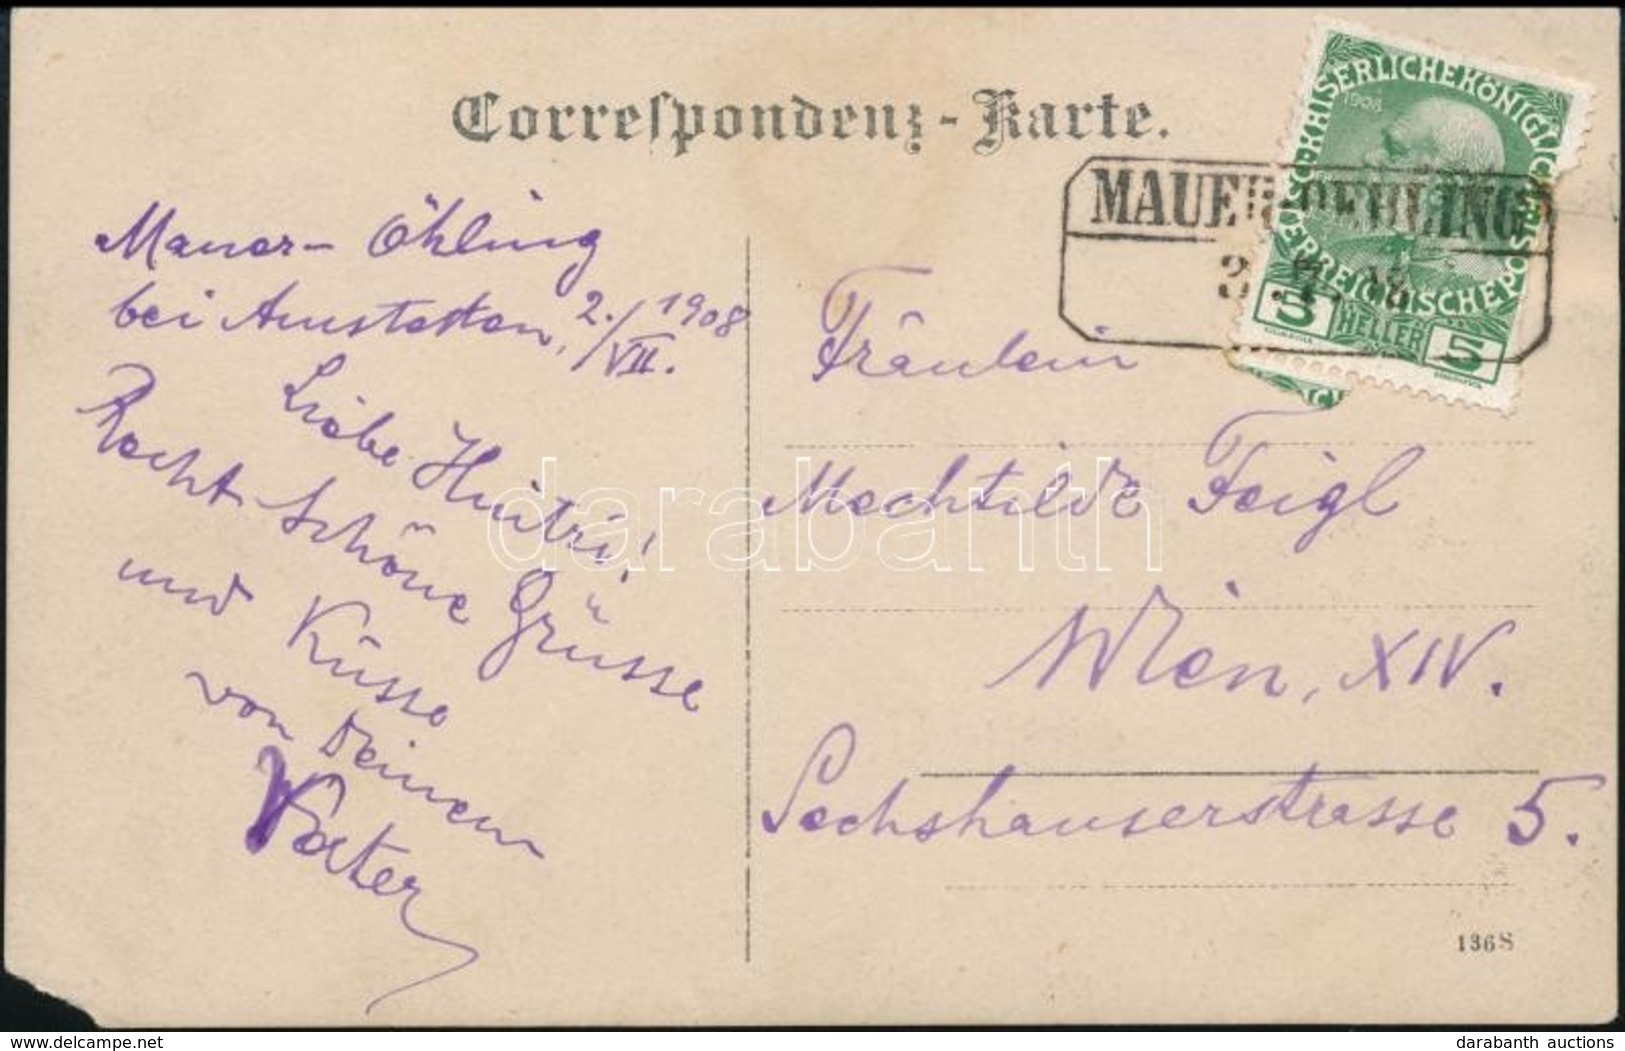 Correspondenz-Karte.
Mauer-Öhling
bei Amstetten, 2./VII. 1908
Liebe
Recht schöne Grüsse
und Küsse
von Deinem
Vater
KAISERLICHEKÖNIGLICHE ÖSTERREICHISCHEPOST
1908
5 HELLER 5
MAUER-OEHLING
3.7.08
Fräulein
Mechtilde Feigl
Wien, XIV.
Sechshauserstrasse 5.
136S
darabanth
delcampe.net
darabanth auctions